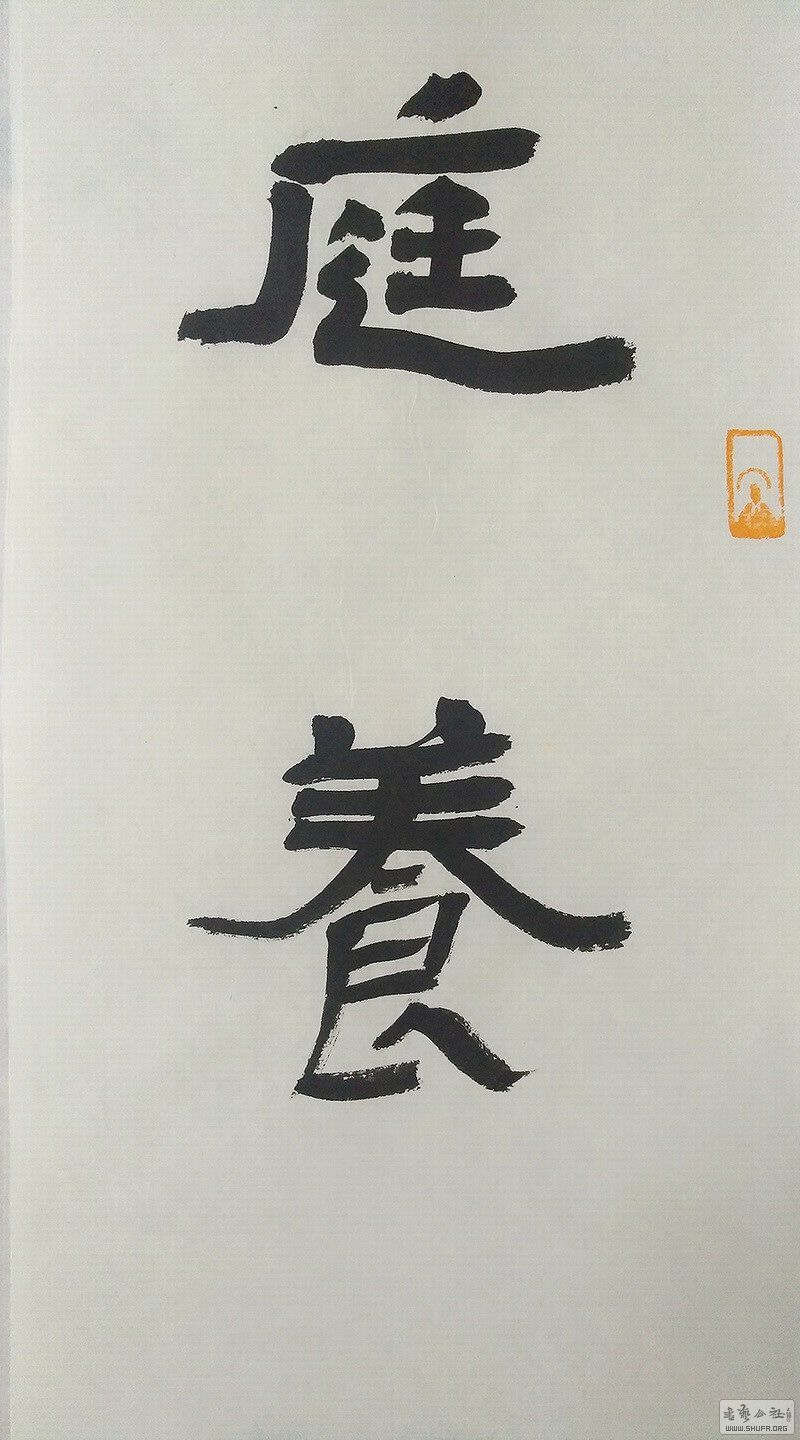 庭
養
書藝公社
WWW.SHUFA.ORG